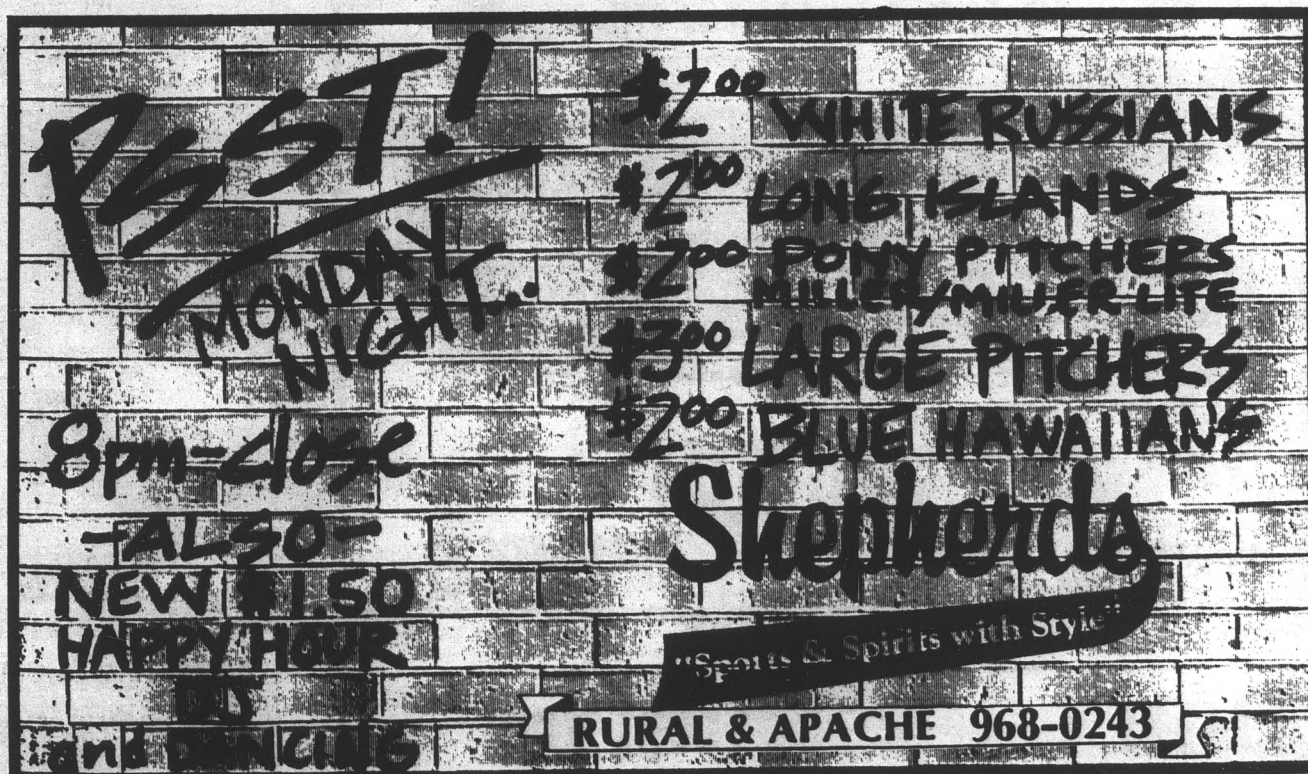 PSST!
MONDAY
NIGHT...
8pm-close
-ALSO-
NEW $1.50
HAPPY HOUR
DJ
and DANCING
$2.00 WHITE RUSSIANS
$2.00 LONG ISLANDS
$2.00 PONY PITCHERS
MILLER/MILLER LITE
$3.00 LARGE PITCHERS
$2.00 BLUE HAWAIIANS
Shepherds
"Sports & Spirits with Style"
RURAL & APACHE 968-0243